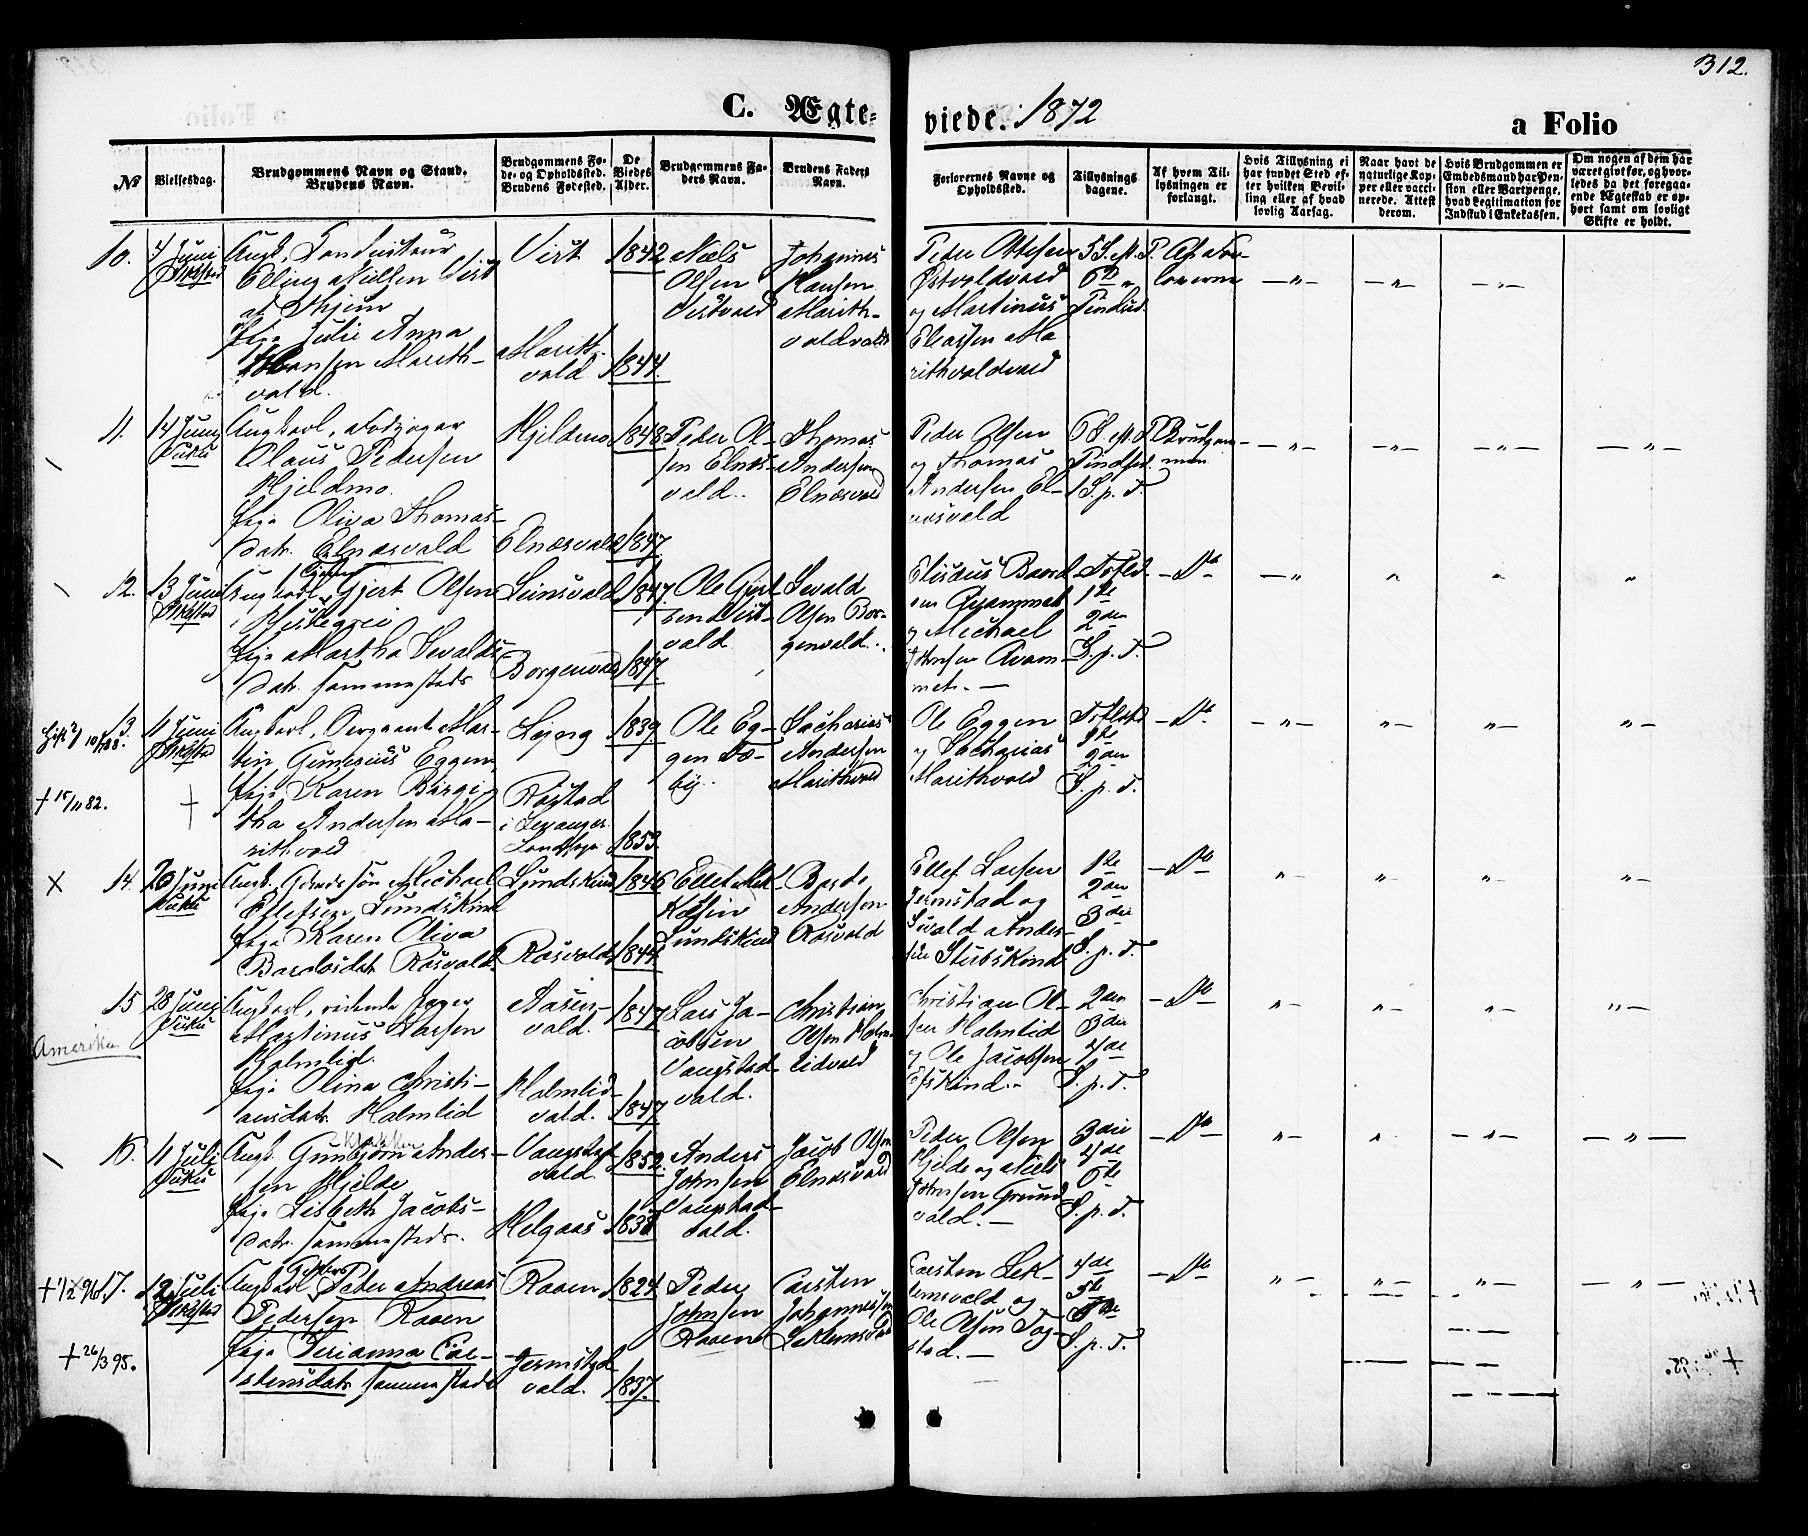 312.
C. Ægte-
viede. 1872
a Folio
No
Vielsesdag.
Brudgommens Navn og Stand.
Brudens Navn.
Brudgommens Fø-
de- og Opholdssted.
Brudens Fødested.
De
Viedes
Alder.
Brudgommens Fa-
ders Navn.
Brudens Faders
Navn.
Forlovernes Navne og
Opholdssted.
Tillysnings
dagene.
Af hvem Til-
lysningen er
forlangt.
Hvis Tillysning ei
har fundet Sted ef-
ter hvilken Bevil-
ling eller af hvad
lovlig Aarsag.
Naar havt de
naturlige Kop-
per eller vacci-
nerede. Attest
derom.
Hvis Brudgommen er
Embedsmand har Pen-
sion eller Vartpenge,
hvad Legitimation for
Indskud i Enkekassen.
Om nogen af dem har
været givt før, og hvor-
ledes da det foregaa-
ende Ægteskab er op-
hørt samt om lovligt
Skifte er holdt.
10.
4 Juni
Ungk.
Elling Nielsen Virt
af Skjern
Pige Julie Anna
Hansen Marith-
vald.
Virt
Marith-
vald
1842
1844.
Niels
Olsen
Virtvald
Johannes
Hansen
Marith-
valdvald
Peder Ottesen
Østvoldvald
og Martinus
Eliassen Ma
rithvaldvald
5 S. e. P.
6te "
Pindsd.
Af For-
loverne
— " —
— " —
— " —
11.
14 Juni
Vuku
Ungkarl,
Olaus Pedersen
Hjeldmo.
Pige Oliva Thomas-
datr. Elnæsvald
Hjeldmo
Elnæsvald
1848
1847
Peder Ol-
sen Elnæs-
vald..
Thomas
Andersen
Elnæsvald
Peder Olsen
og Thomas
Andersen El-
næsvald
6 S. e. P.
Pindsd.
1 S. p. T.
Brudgom-
men
— " —
— " —
— " —
— " —
12.
13 Juni
Ungkarl Gjert Olsen
Pige Martha Sevalds-
datr. sammesteds
Leinsvald
Borgenvald
1847.
1847.
Ole Gjert
sen Virt-
vald
Sevald
Olsen Bor-
genvald..
Elisæus Baard
sen Qvammet
og Michael
Johnsen Qvam-
met. —
1ste
2den
S. p. T.
— Do
— "
"
"
"
13.
11 Juni
+ 15/11 82.
Ungkarl, Sergeant Mar-
tin Gunerius Eggen,
Pige Karen Birgi
tha Andersen Ma-
rithvald
Leing
Røstad
i Levanger
Landsogn
1839
1853
Ole Eg-
gen
Zacharias
Andersen
Marithvald
Ole Eggen
og Zacharias
Marithvald
1ste
2den
S. p. T.
— Do
— " —
" —
" —
" —
X
14.
20 Juni
Vuku
Ungk. Gaardssøn Michael
Ellefsen Lundskind
Pige Karen Oliva
Bardosdatr. Rosvald
Lundskind
Rosvald
1846
1844
Ellef
Lundskind
Bardo
Andersen
Rosvald
Ellef Larsen
Jermstad og
Sivald Ander-
sen Stubskind
1ste
2den
3die
S. p. T.
— Do
" —
" —
" —
" —
15
28 Juni
Vuku
Amerika
Ungkarl, ridende Jæger
Martinus Larsen
Holmlid.
Pige Olina Christi-
ansdatr. Holmlid
Aasen-
vald.
Holmlid-
vald.
1847
1847
Lars Ja-
cobsen
Vangstad-
vald.
Christian
Olsen Holm-
lidvald
Christian Ol-
sen Holmlid
og Ole Jacobsen
Efskind..
2den
3die
4de
S. p. T.
— Do
" —
" —
" —
" —
16.
11 Juli
Vuku
Ungk. Gunbjørn Ander-
sen Hjelde
Pige Lisbeth Jacobs-
datr. sammesteds.
Vangstad
vald.
Helgaas
1852.
1838
Anders
Johnsen
Vangstad-
vald.
Jacob Olsen
Elnæsvald
Peder Olsen
Hjelde og Niels
Johnsen Grund-
vald. —
3die
4de
5te
S. p. T.
— Do —
" —
"
— " —
— " —
17.
12 Juli
+ 26/3 95.
Ungkarl Peder Andreas
Pedersen Raaen
Pige Jerianna Car-
stensdatr. sammesteds
Raaen
Jermstad-
vald.
1824
1837.
Peder
Johnsen
Raaen
Carsten
Johannessen
Leklemsvald
Carsten Lek-
lemsvald og
Ole Olsen Tog-
stad. —
4de
5te
S. p. T.
— Do
" —
" —
" —
— " —